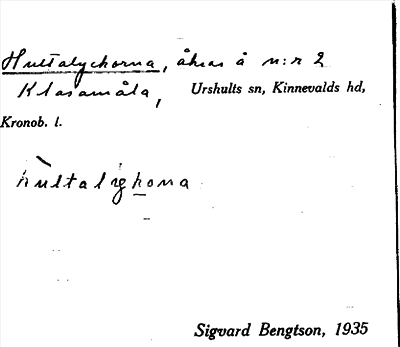 Hultalyckorna, åkrar å n:r 2
Klasamåla, Urshults sn, Kinnevalds hd,
Kronob. l.
Sigvard Bengtson, 1935